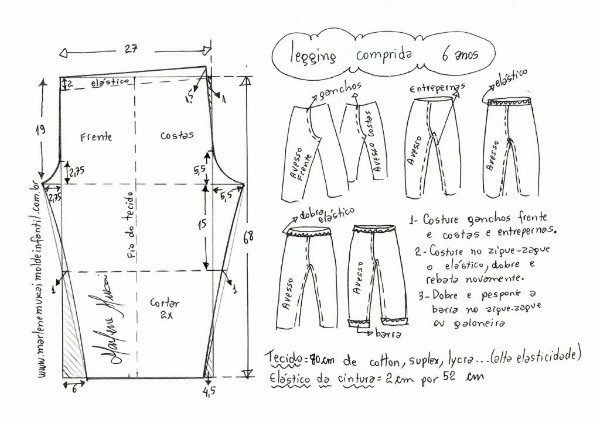 legging comprida 6 anos
27
2 elástico
1,5
1
19
Frente
Costas
2,75
5,5
2,75
5,5
Fio do tecido
15
68
1
1
Cortar
2x
Marlene Mukai
6
4,5
www.marlenemukaimoldeinfantil.com.br
ganchos
Avesso
Frente
Avesso
Costas
Entrepernas
Avesso
elástico
Avesso
dobra
elástico
Avesso
Avesso
barra
1- Costure ganchos frente
e costas e entrepernas.
2- Costure no zigue-zague
o elástico, dobre e
rebata novamente.
3- Dobre e pesponte a
barra no zigue-zague
ou galoneira
Tecido = 70cm de cotton, suplex, lycra... (alta elasticidade)
Elástico da cintura = 2cm por 52 cm